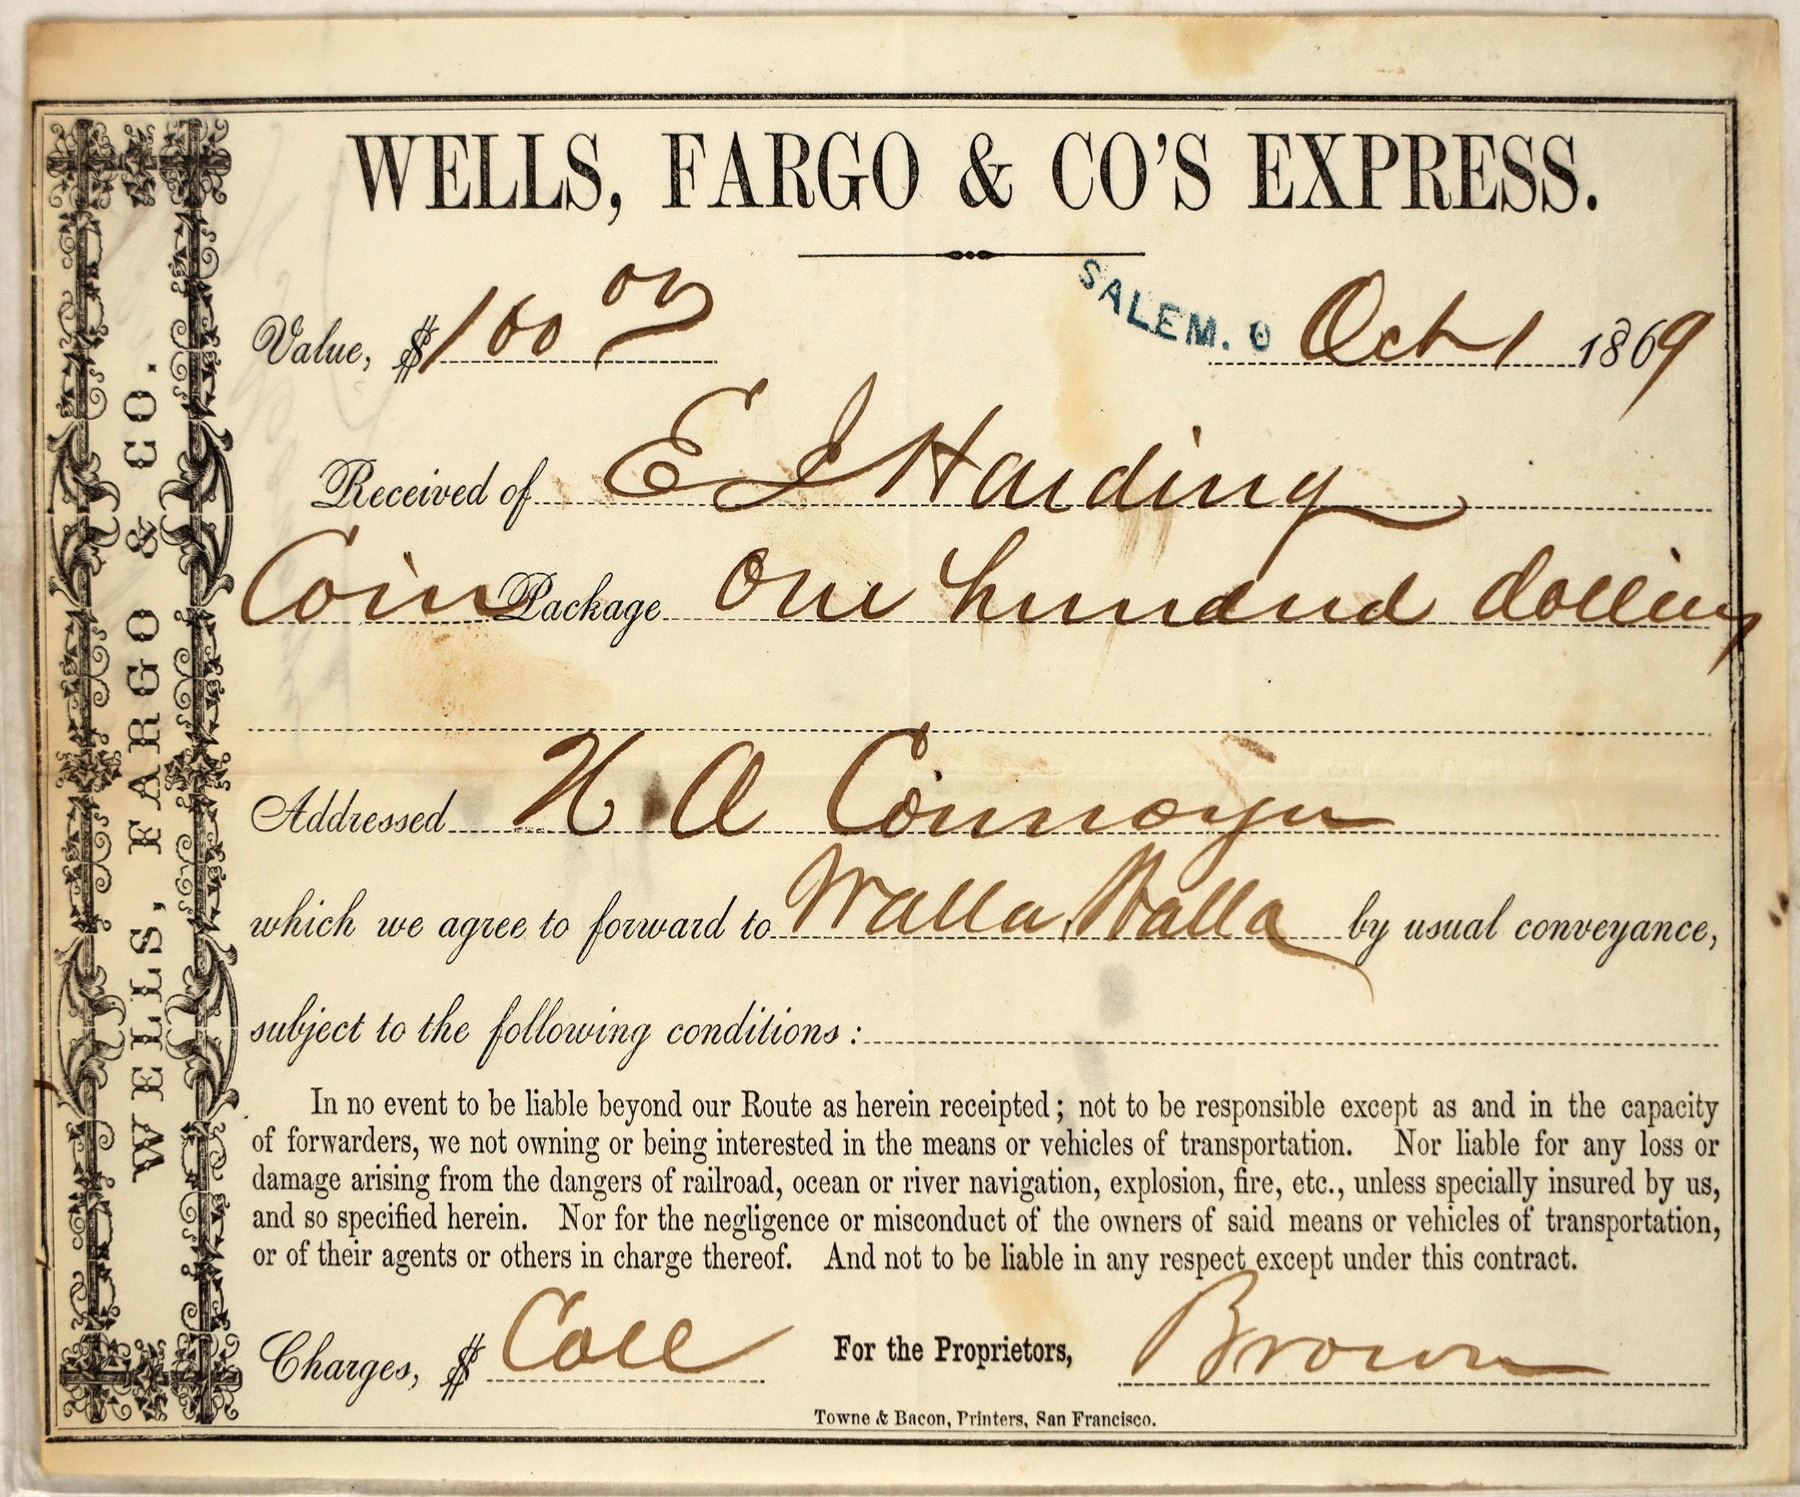 WELLS, FARGO & CO'S EXPRESS.
WELLS, FARGO & CO.
Value, $100 00 SALEM. O Oct 1 1869
Received of E J Harding
Coin Package One hundred dollars
Addressed H A Connoyer
which we agree to forward to Walla Walla by usual conveyance,
subject to the following conditions:
In no event to be liable beyond our Route as herein receipted; not to be responsible except as and in the capacity
of forwarders, we not owning or being interested in the means or vehicles of transportation. Nor liable for any loss or
damage arising from the dangers of railroad, ocean or river navigation, explosion, fire, etc., unless specially insured by us,
and so specified herein. Nor for the negligence or misconduct of the owners of said means or vehicles of transportation,
or of their agents or others in charge thereof. And not to be liable in any respect except under this contract.
Charges, $ Coll For the Proprietors, Brown
Towne & Bacon, Printers, San Francisco.